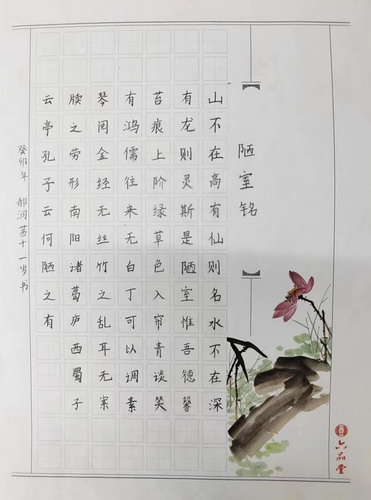 陋室铭
山不在高有仙则名水不在深
有龙则灵斯是陋室惟吾德馨
苔痕上阶绿草色入帘青谈笑
有鸿儒往来无白丁可以调素
琴阅金经无丝竹之乱耳无案
牍之劳形南阳诸葛庐西蜀子
云亭孔子云何陋之有
癸卯年 郝润十一岁书
六品堂